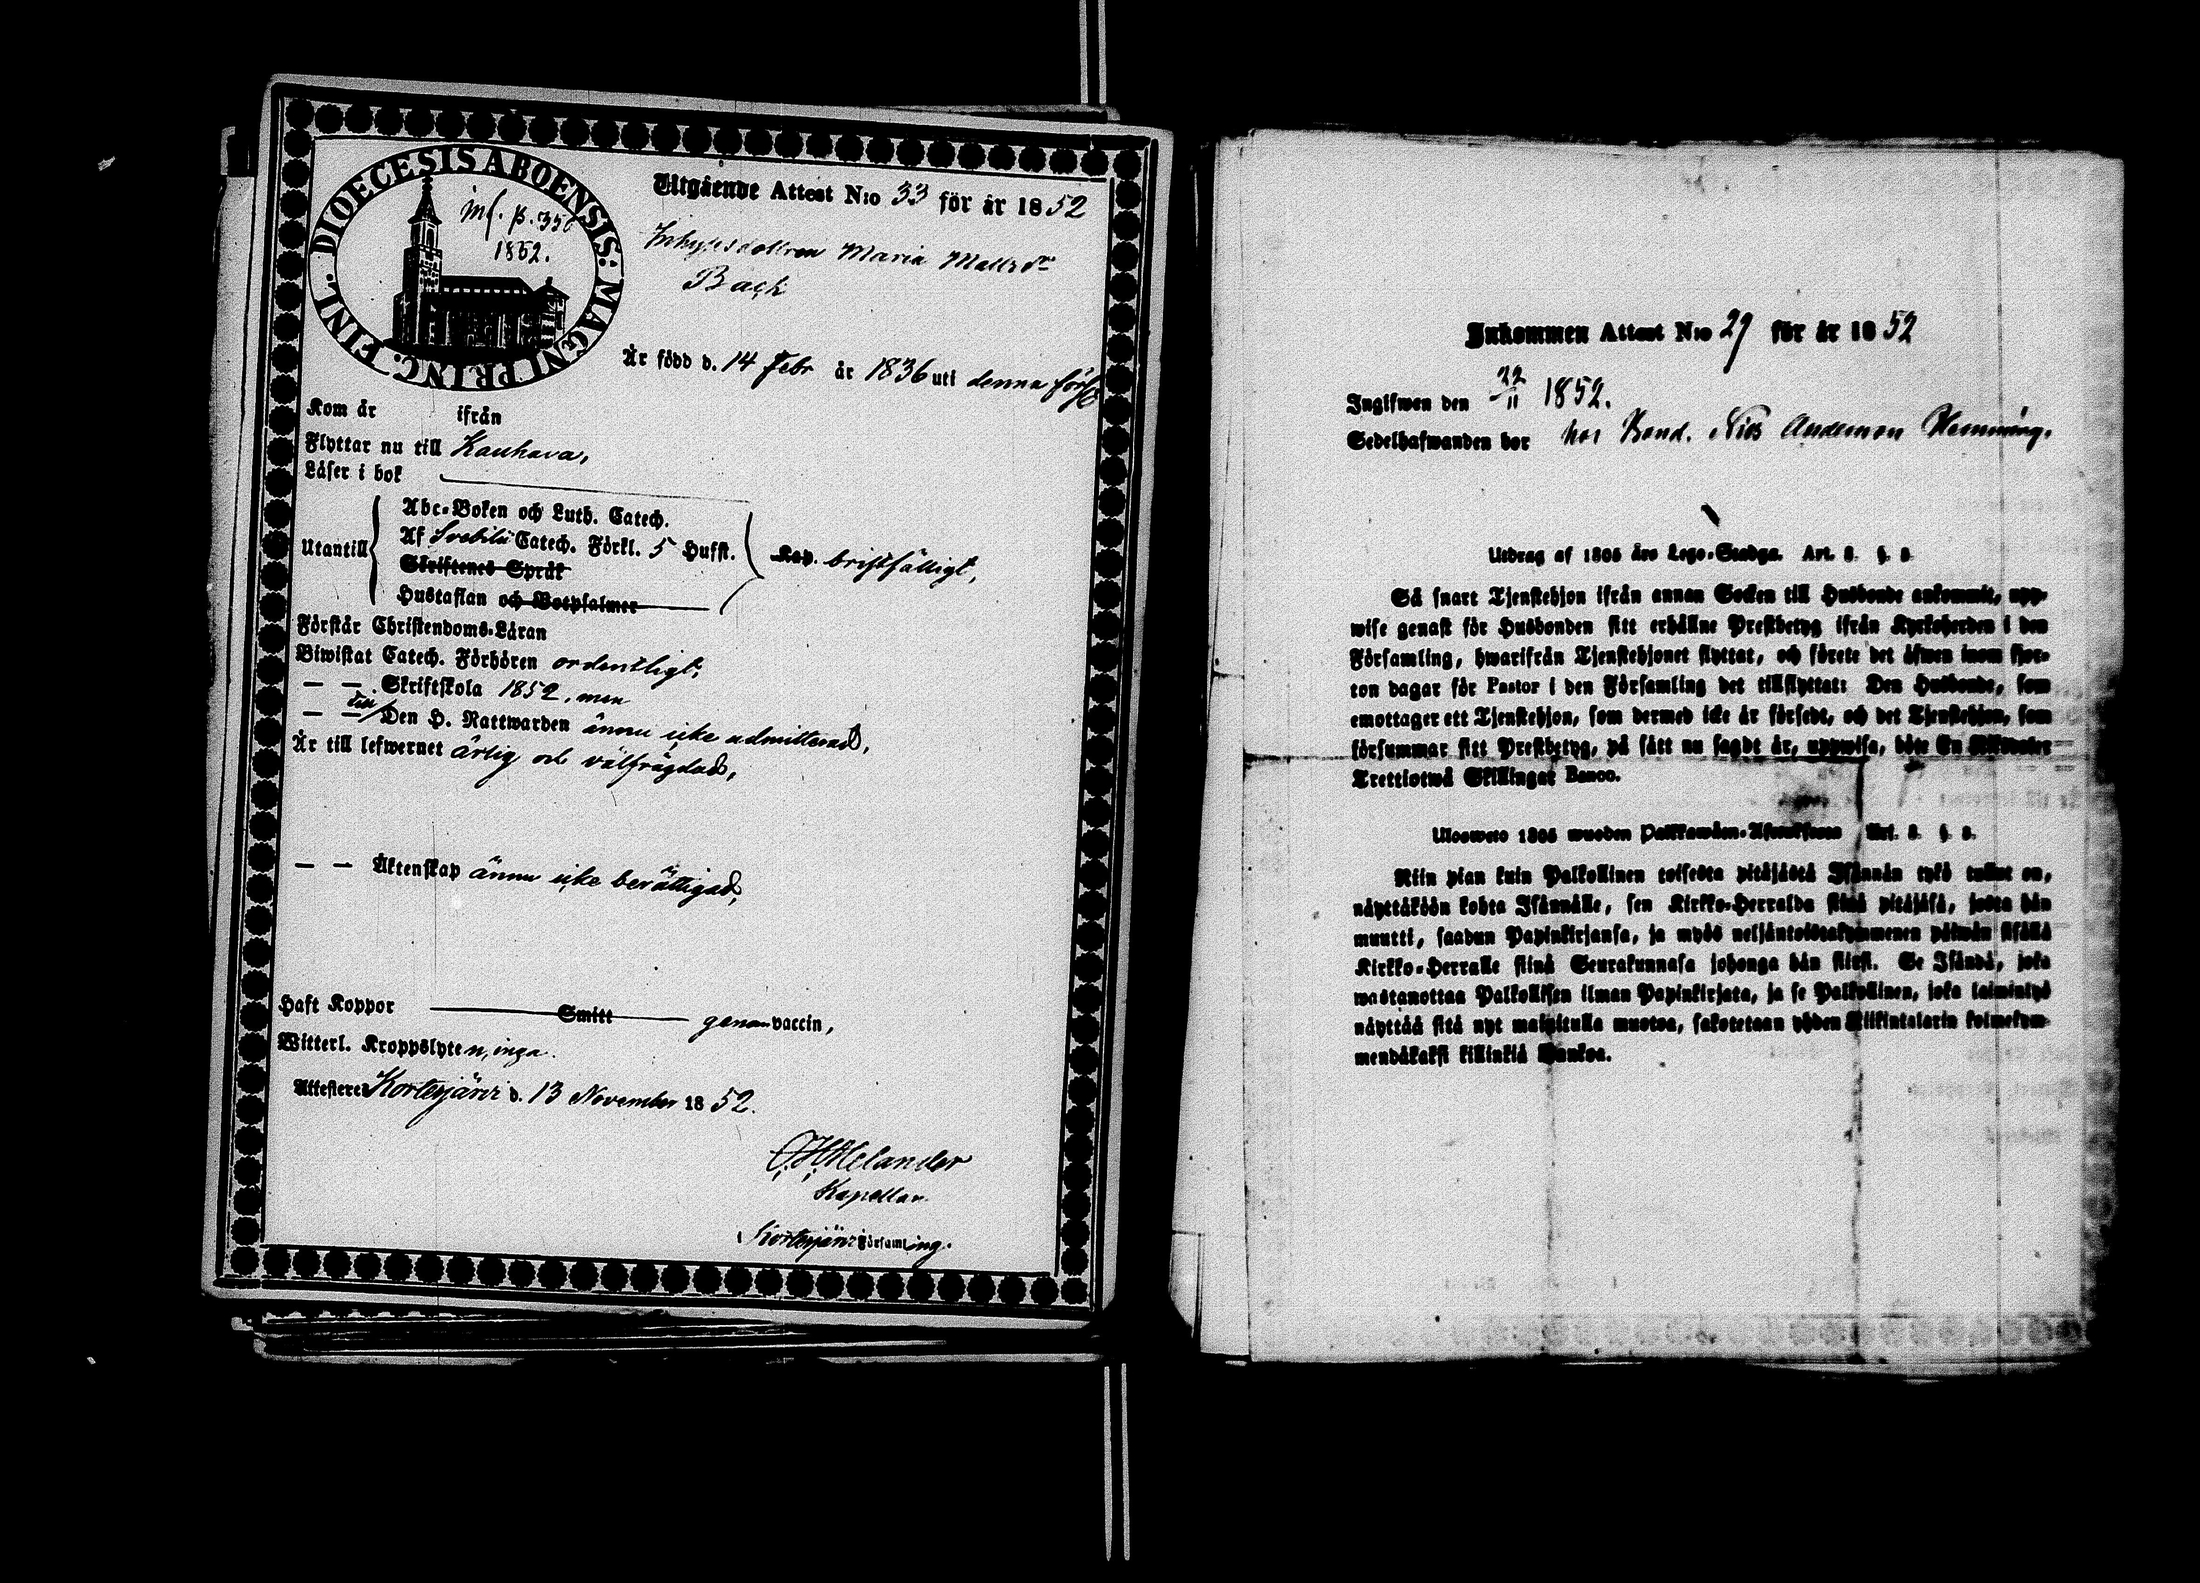 DIOECESIS ABOENSIS: MAGNI PRINC. FINL.
inf. p. 356
1852.
Utgående Attest N:o 33 för år 1852
Inhysesdottren Maria Mattsdr
Back
Är född d. 14 Febr år 1836 uti denna förs
Kom år ifrån
Flyttar nu till Kauhava,
Läser i bok
Utantill
Abc-Boken och Luth. Catech.
Af Svebilii Catech. Förkl. 5 Hufst.
Skriftenes Språk
Hustaflan och Botpsalmer
Kap. bristfälligt,
Förstår Christendoms-Läran
Biwistat Catech. Förhören ordentligt,
— — Skriftskola 1852, men
— — till Den H. Nattwarden ännu icke admitterad,
Är till lefwernet ärlig och välfrägdad,
— — Äktenskap ännu icke berättigad,
Haft Koppor Smitt genom vaccin,
Witterl. Kroppslyten, inga.
Attesteras Kortesjärvi d. 13 November 1852.
C. H. Helander
Kapellan
i Kortesjärvi Församling.
Inkommen Attest N:o 29 för år 1852
Ingifwen den 22/11 1852.
Sedelhafwanden bor hos Bond. Nils Anderson Hemming.
Utdrag af 1805 års Lego-Stadga. Art. 3. §. 3
Så snart Tjenstehjon ifrån annan Socken till Husbonde ankommit, upp-
wise genast för Husbonden sitt erhållne Prestbetyg ifrån Kyrkoherden i den
Församling, hwarifrån Tjenstehjonet flyttat, och förete det äfwen inom fjor-
ton dagar för Pastor i den Församling det tillflyttat: Den Husbonde, som
emottager ett Tjenstehjon, som dermed icke är försedt, och det Tjenstehjon, som
försummar sitt Prestbetyg, på sätt nu sagdt är, uppwisa, böte En Riksdaler
Trettiotwå Skillingar Banco.
Uloswето 1805 wuoden Palkkawäen-Asetuksesta Art. 3. §. 3.
Niin pian kuin Palkollinen toisesta pitäjästä Isännän tykö tullut on,
näyttäköön kohta Isännälle, sen Kirkko-Herralda siinä pitäjäsä, josta hän
muutti, saadun Papinkirjansa, ja myös neljäntoistakymmenen päiwän sisällä
Kirkko-Herralle siinä Seurakunnasa johonga hän siirsi. Se Isändä, joka
wastanottaa Palkollisen ilman Papinkirjata, ja se Palkollinen, joka laiminlyö
näyttää sitä nyt mainitulla muotoa, sakotetaan yhden Riikintalarin kolmekym-
mendäkaksi killinkiä Bankoa.